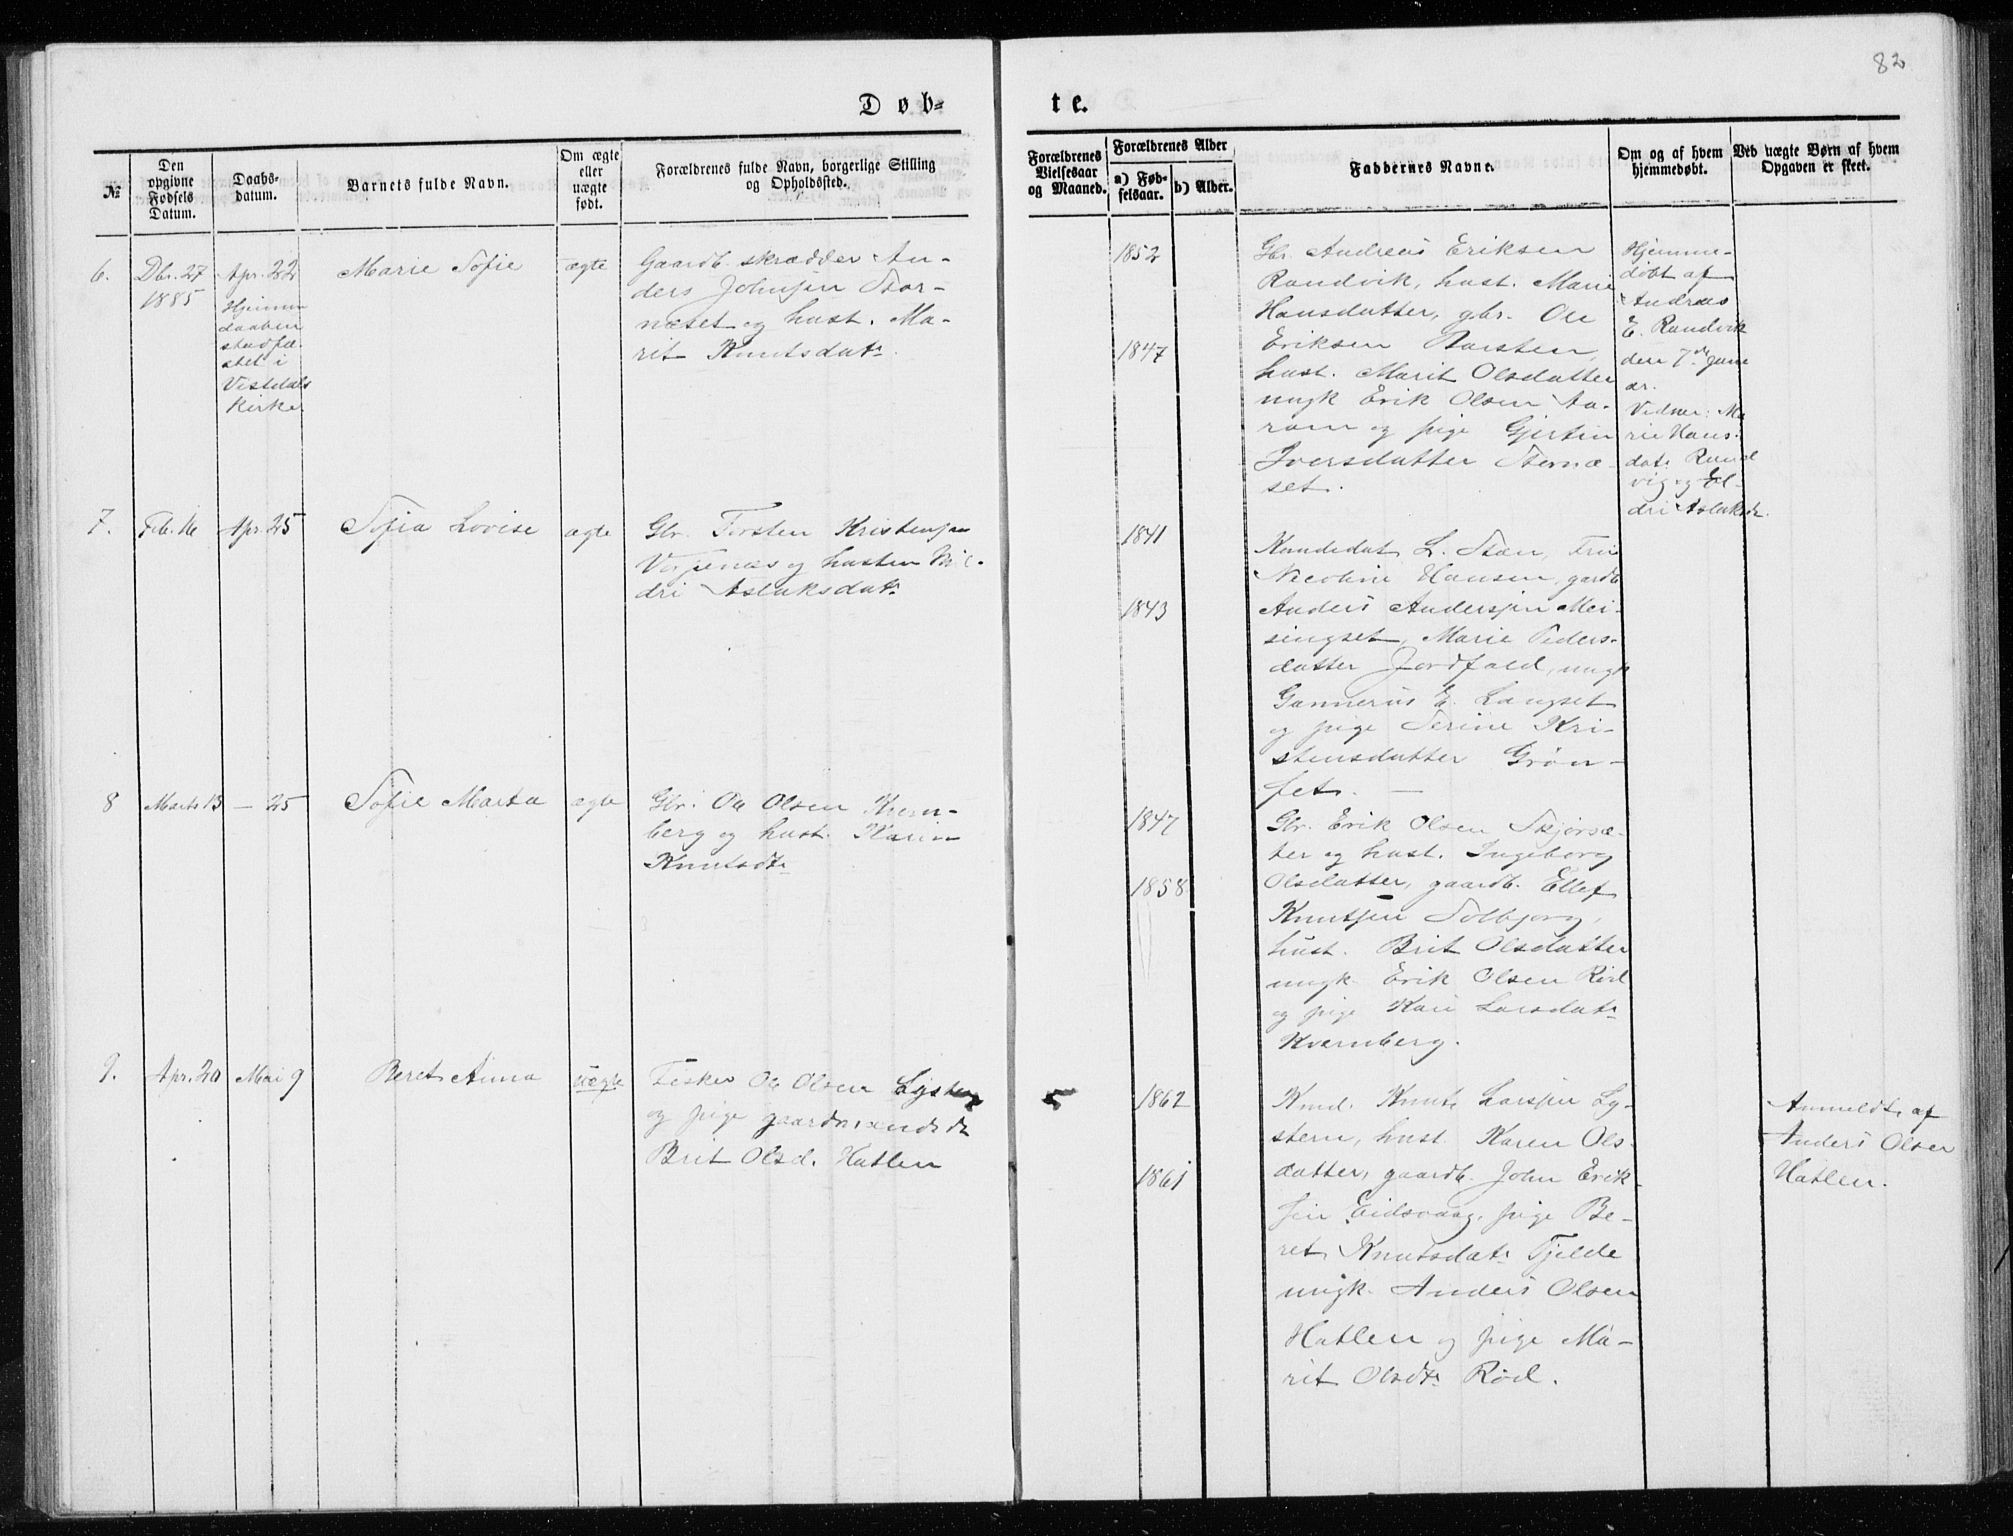 82
Døb=
te.
№
Den opgivne Fødsels Datum.
Daabs-datum.
Barnets fulde Navn.
Om ægte eller uægte født.
Forældrenes fulde Navn, borgerlige Stilling og Opholdssted.
Forældrenes Vielsesaar og Maaned.
Forældrenes Alder
a) Fødselsaar.
b) Alder.
Faddernes Navne.
Om og af hvem hjemmedøbt.
Ved uægte Børn af hvem Opgaven er skeet.
6.
Dbr. 27
1885
Apr. 22
Hjemme
daaben
stadfæ-
stet i
Vistdals
Kirke
Marie Sofie
ægte
Gaardb. skrædder An-
ders Johnsen Stor-
næset og hust. Ma-
rit Knutsdatr
1852
1847
Gbr. Andreas Eriksen
Randvik, hust. Marie
Hansdatter, gbr. Ole
Eriksen
hust. Marit Olsdatter
ungk Erik Olsen Aa-
ram og pige Gjertin
Iversdatter Stornæ-
set.
Hjemme-
døbt af
Andreas
E. Randvik
den 7de Janu
ar.
Vidner: Ma
rie Hans-
datr Rand
vig og El-
dri Aslaksdr.
7.
Feb. 16
Apr. 25
Sofia Lovise
ægte
Gbr. Torsten Kristensen
og hustru
dri Aslaksdatr
1841
1843
Kandidat L. Steen, Fru
Nicoline Hansen, gardb
Anders Andersen Mei-
singset, Marie Peders-
datter Jordfald, ungk
Gunnerus E. Langset
og pige Serine Kri-
stensdatter Grøn-
set. —
8
Marts 13
— 25
Sofie Marta
ægte
Gbr. Ole Olsen Kvern-
berg og hust. Karin
Knutsdtr
1847
1858
Gbr. Erik Olsen Skjørsæ-
ter og hust. Ingeborg
Olsdatter, gaardb. Ellef
Knutsen Solbjorg,
hust. Brit Olsdatter
ungk. Erik Olsen Rød
og pige Kari Larsdatr
Kvernberg.
9.
Apr. 20
Mai 9
Beret Anna
uægte
Fisker Ole Olsen Lyster
og pige gaardmandsdr
Brit Olsd. Hatlen
1862
1861
Kmd. Knut Larsen Ly-
stern, hust. Karen Ols-
datter, gaardb. John Erik-
sen Eidsvaag, pige Be-
ret Knutsdatr Tjelde
ungk. Anders Olsen
Hatlen og pige Ma-
rit Olsdtr Rød.
Anmeldt af
Anders Olsen
Hatlen.